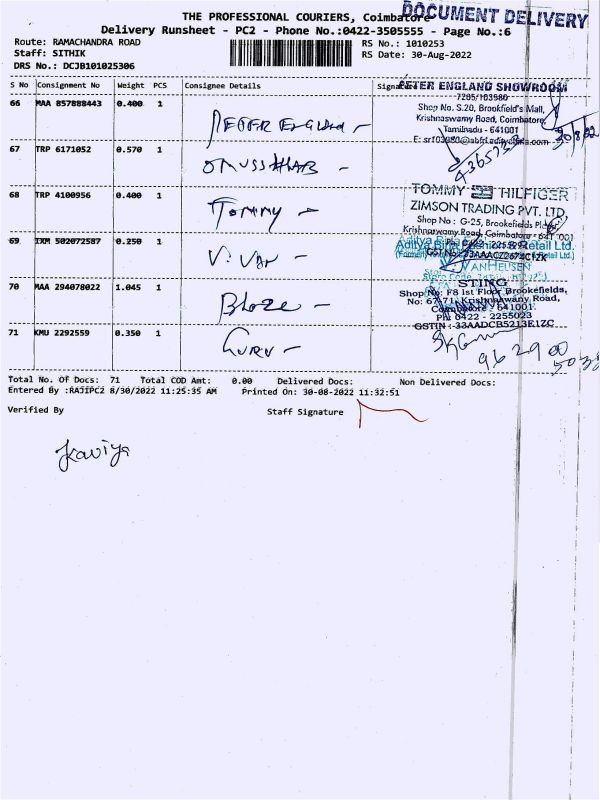 DOCUMENT DELIVERY
THE PROFESSIONAL COURIERS, Coimbatore
Delivery Runsheet - PC2 - Phone No.:0422-3505555 - Page No.:6
Route: RAMACHANDRA ROAD
RS No.: 1010253
Staff: SITHIK
RS Date: 30-Aug-2022
DRS No.: DCJB101025306
S No Consignment No Weight PCS Consignee Details Signature
66 MAA 857888443 0.400 1 PETER ENGLAND -
PETER ENGLAND SHOWROOM
7205/103980
Shop No. S.20, Brookfield's Mall,
Krishnaswamy Road, Coimbatore,
Tamilnadu - 641001
30/8/22
67 TRP 6171052 0.570 1
68 TRP 4100956 0.400 1 Tommy -
TOMMY HILFIGER
ZIMSON TRADING PVT. LTD.
Shop No : G-25, Brookefields Plaza
Krishnaswamy Road, Coimbatore - 641 001
69 IXM 502072587 0.250 1 V. Van -
VAN HEUSEN
70 MAA 294078022 1.045 1
STING
Shop No: F8 1st Floor Brookefields,
No: 67-71, Krishnaswany Road,
Coimbatore - 641001.
Ph: 0422 - 2255023
GSTIN : 33AADCB5213E1ZC
71 KMU 2292559 0.350 1 Guru -
Total No. Of Docs: 71 Total COD Amt: 0.00 Delivered Docs: Non Delivered Docs:
Entered By :RAJIPC2 8/30/2022 11:25:35 AM Printed On: 30-08-2022 11:32:51
Verified By Staff Signature
Kaviya